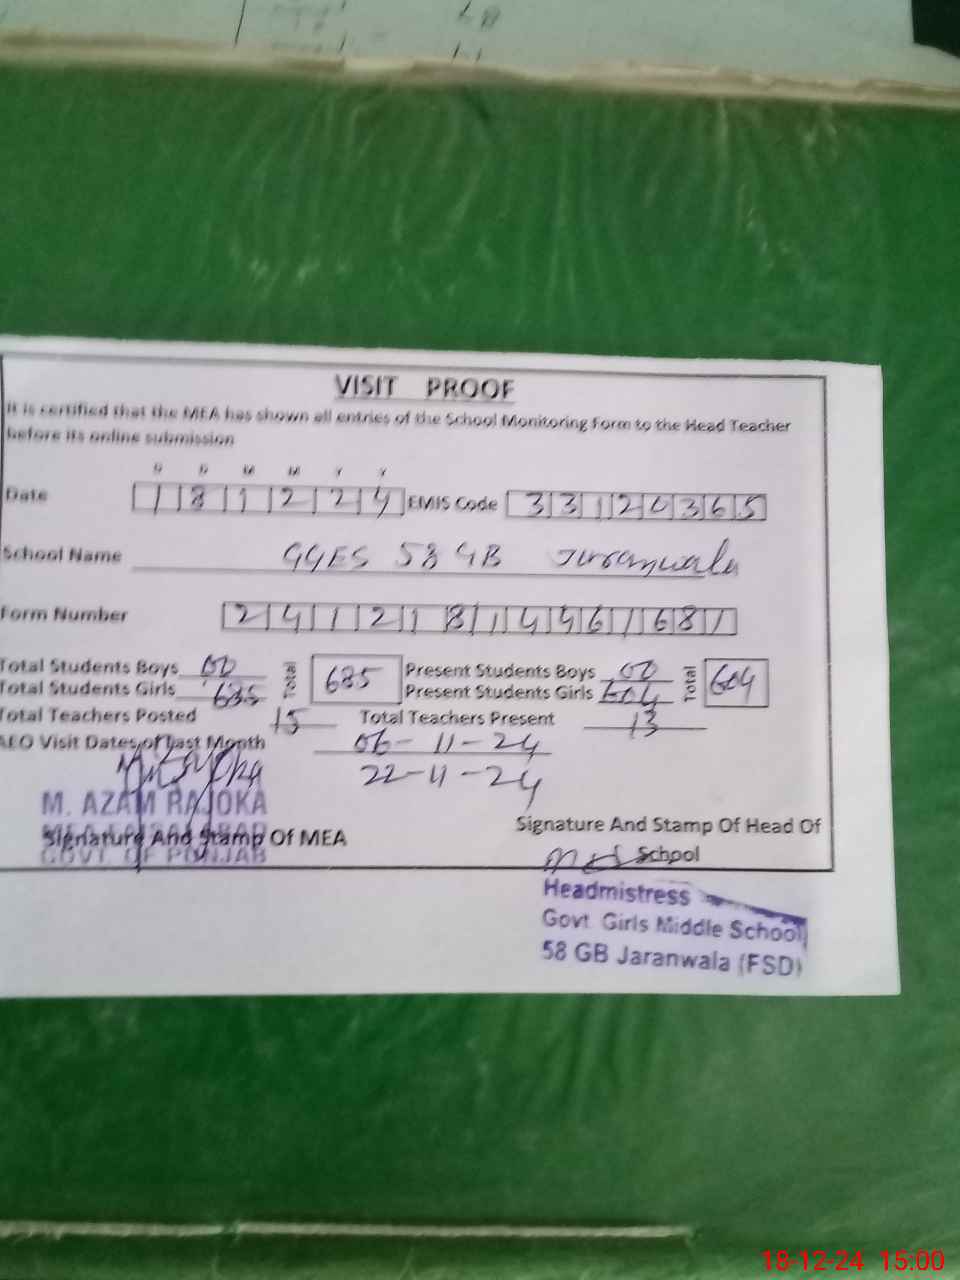 VISIT PROOF
It is certified that the MEA has shown all entries of the School Monitoring Form to the Head Teacher
before its online submission
D D M M Y Y
Date 181224 EMIS Code 33120365
School Name GGES 58 GB Jaranwala
Form Number 24121814461681
Total Students Boys 00 Total 685 Present Students Boys 00 Total 604
Total Students Girls 685 Present Students Girls 604
Total Teachers Posted 15 Total Teachers Present 13
AEO Visit Dates of Last Month 06-11-24
22-11-24
M. AZAM RAJOKA
Signature And Stamp Of MEA
GOVT. OF PUNJAB
Signature And Stamp Of Head Of
School
Headmistress
Govt. Girls Middle School
58 GB Jaranwala (FSD)
18-12-24 15:00